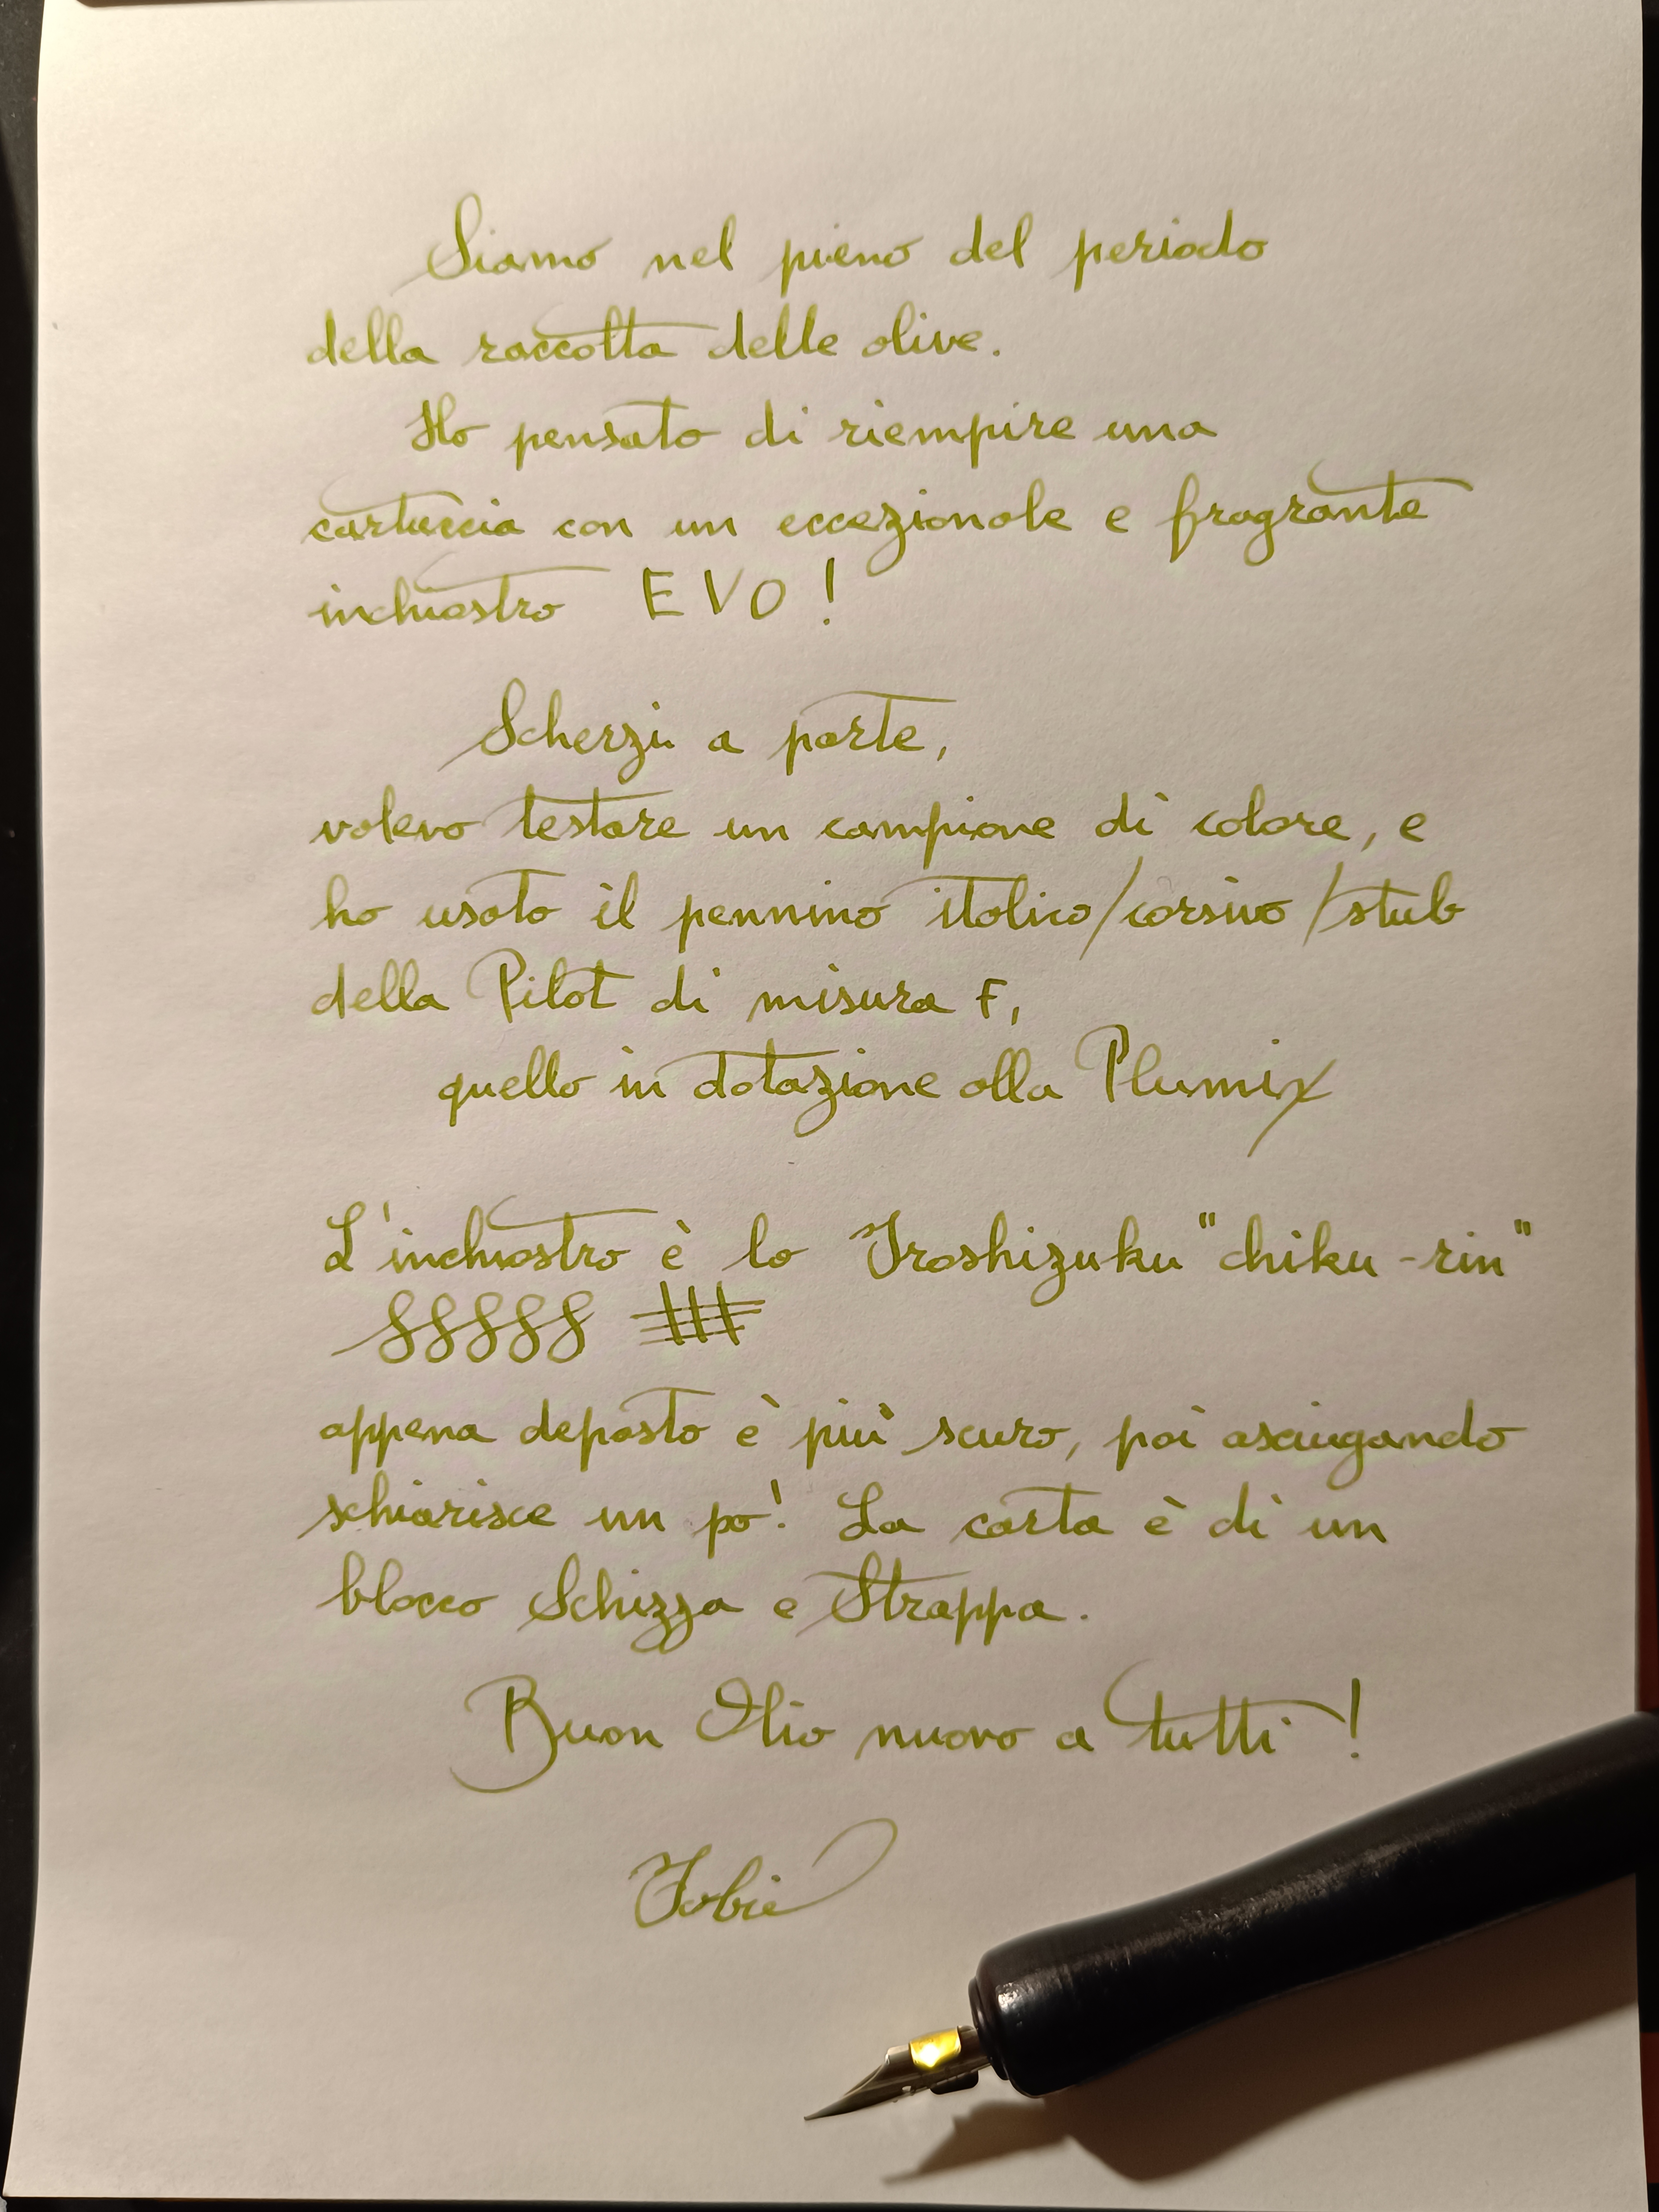 Siamo nel pieno del periodo
della raccolta delle olive.
Ho pensato di riempire una
cartuccia con un eccezionale e fragrante
inchiostro EVO!
Scherzi a parte,
volevo testare un campione di colore, e
ho usato il pennino italico/corsivo/stub
della Pilot di misura F,
quello in dotazione alla Plumix
L'inchiostro è lo Iroshizuku "chiku-rin"
appena deposto è più scuro, poi asciugando
schiarisce un po'. La carta è di un
blocco Schizza e Strappa.
Buon Olio nuovo a tutti!